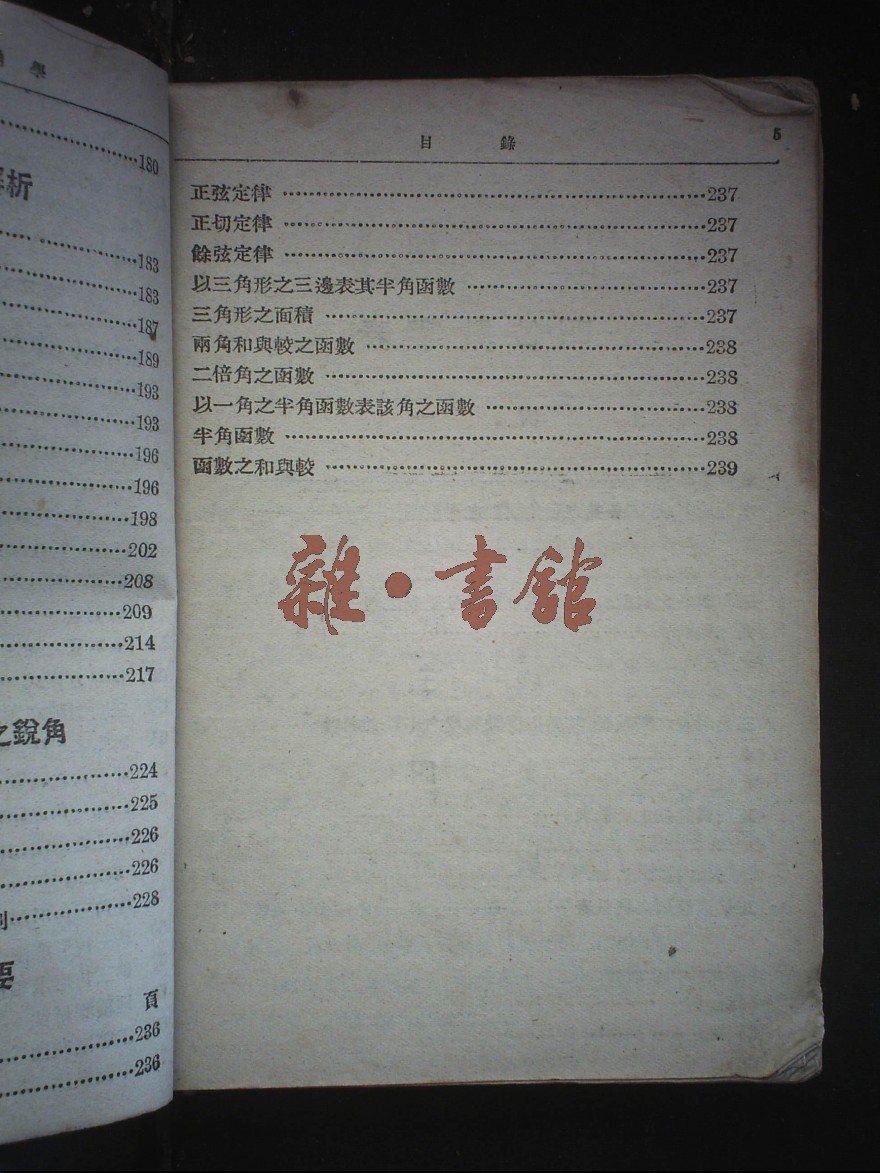 學
180
析
183
183
187
189
193
193
196
196
198
202
208
209
214
217
之銳角
224
225
226
226
228
要
頁
236
236
目錄 5
正弦定律 237
正切定律 237
餘弦定律 237
以三角形之三邊表其半角函數 237
三角形之面積 237
兩角和與較之函數 238
二倍角之函數 238
以一角之半角函數表該角之函數 238
半角函數 238
函數之和與較 239
雜·書館